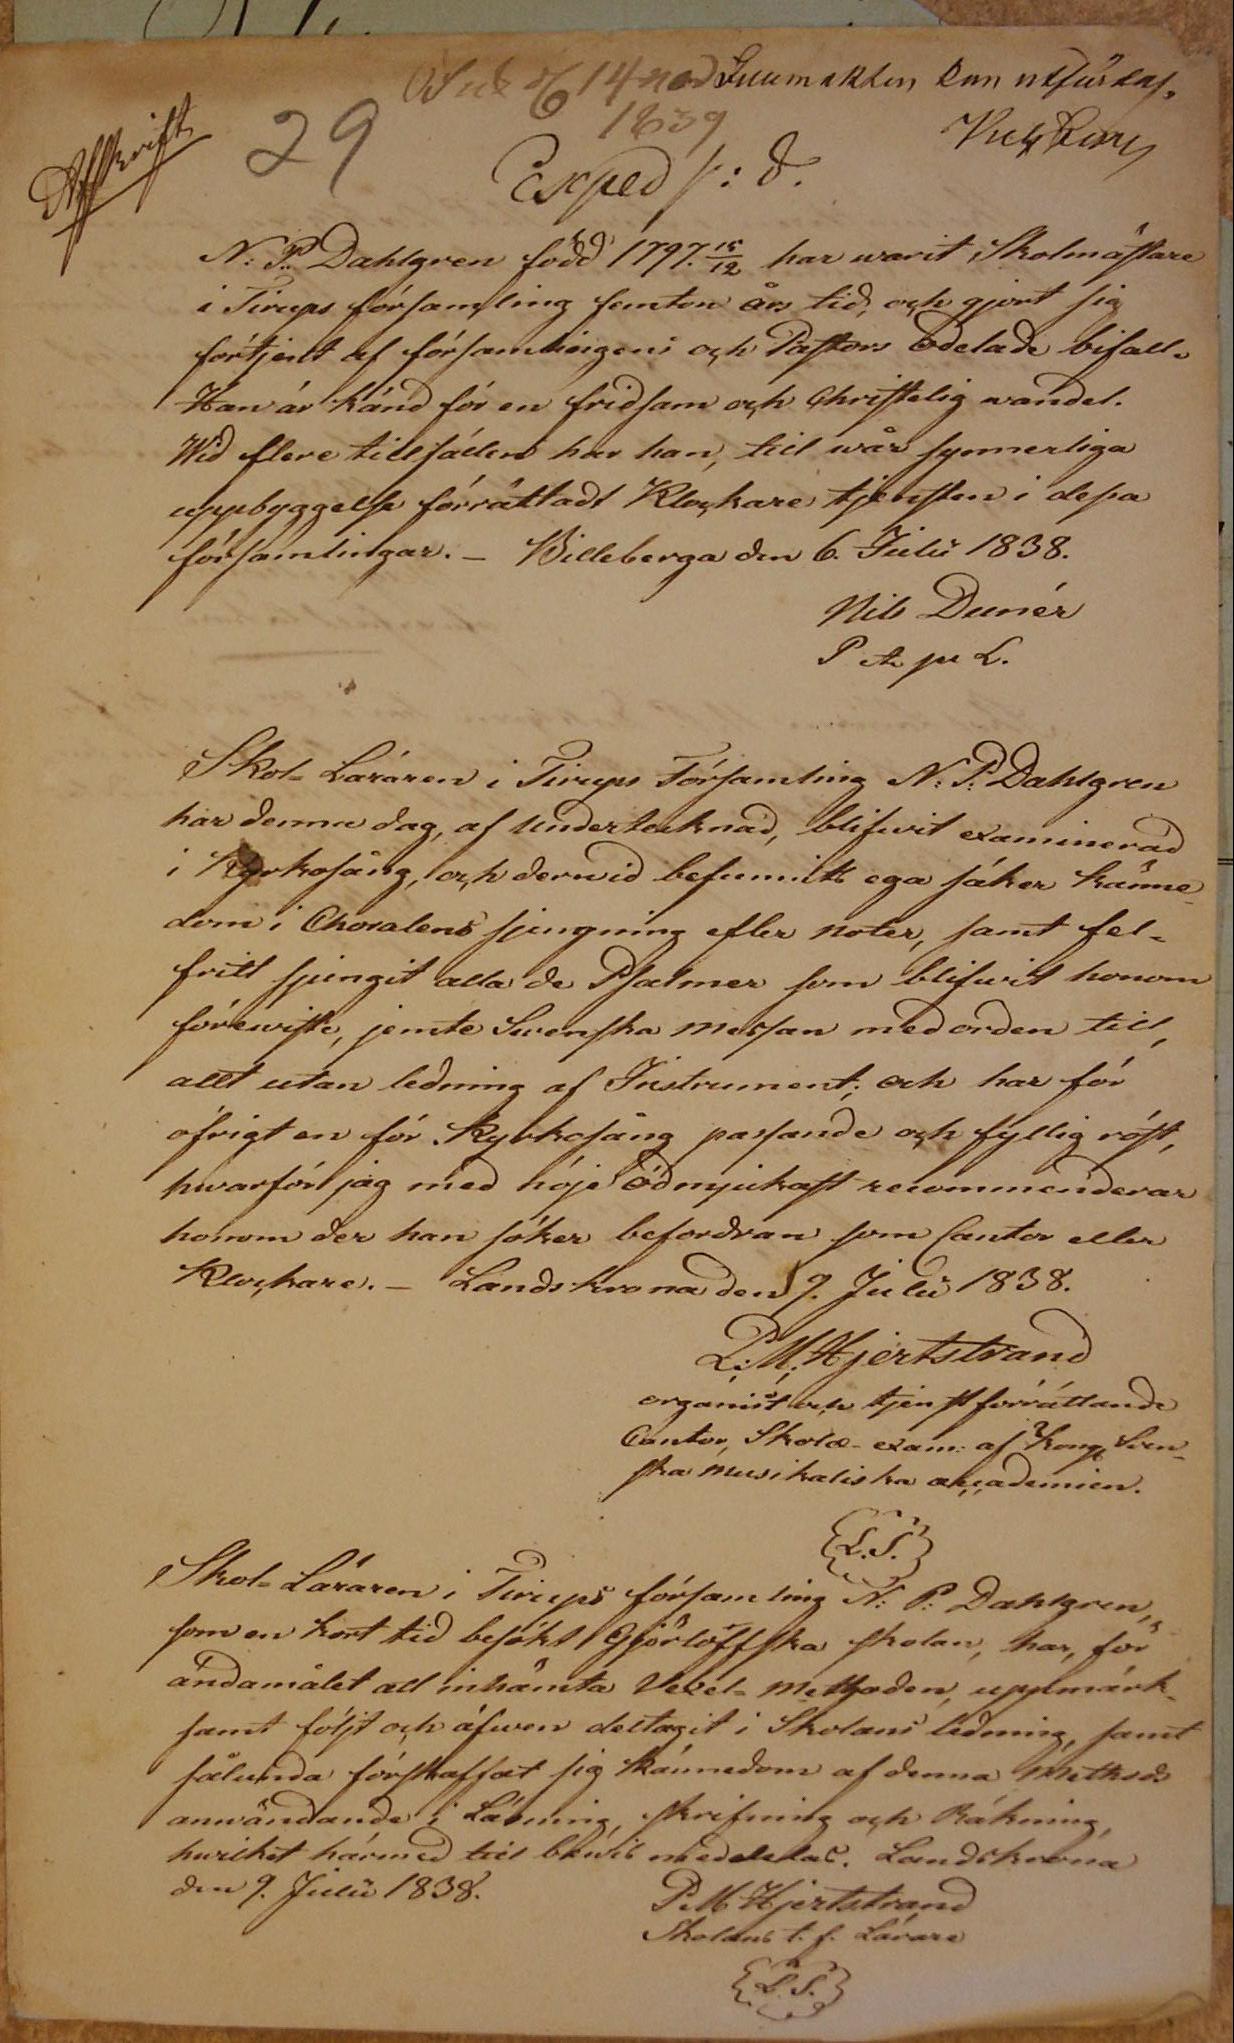 Afskrift
29
14 nov
1839
Exped /: d.
N: P: Dahlgren född 1797. 15/12 har warit Skolmästare
i Tirups församling femton års tid, och gjort sig
förtjent af församlingens och Pastors odelade bifall.
Han är känd för en fridsam och Christelig wandel.
Wid flere tillfällen har han, till wår synnerliga
uppbyggelse förrättadt Klockare tjensten i dessa
församlingar. – Billeberga den 6. Julii 1838.
Nils Dunér
P. et p. L.
Skol-Läraren i Tirups Församling N: P: Dahlgren
har denna dag, af undertecknad, blifwit examinerad
i Kyrkosång, och derwid befunnits ega säker känne-
dom i Choralens sjungning efter noter, samt fel-
fritt sjungit alla de Psalmer som blifwit honom
förewiste, jemte Swenska Messan med orden till,
allt utan ledning af Instrument; och har för
öfrigt en för Kyrkosång passande och fyllig röst,
hwarför jag med höje ödmjukast recommenderar
honom der han söker befordran som Cantor eller
Klockare. – Landskrona den 9. Julii 1838.
P: M: Hjertstrand
organist och tjenstförrättande
Cantor, Skolæ- exam: af Kongl. Swen-
ska Musikaliska academien.
L.S.
Skol-Läraren i Tirups församling N: P: Dahlgren,
som en kort tid besökt Gjörlöffska skolan, har, för
ändamålet att inhämta Vexel-Methoden, uppmärk-
samt följt och äfwen deltagit i Skolans ledning, samt
sålunda förskaffat sig kännedom af denna Methods
anwändande i Läsning, skrifning och Räkning,
hwilket härmed till bewis meddelas. Landskrona
den 9. Julii 1838.
P. M. Hjertstrand
Skolans t. f. Lärare
L. S.